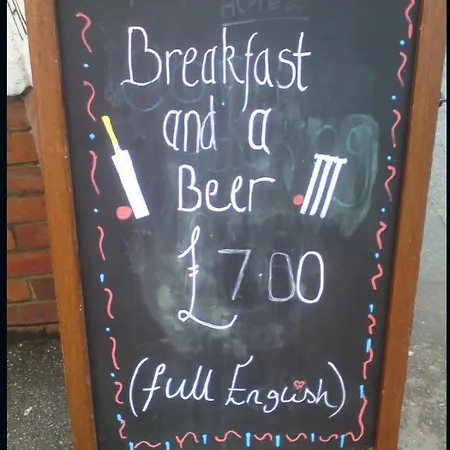 Breakfast
and a
Beer
£7.00
(full English)